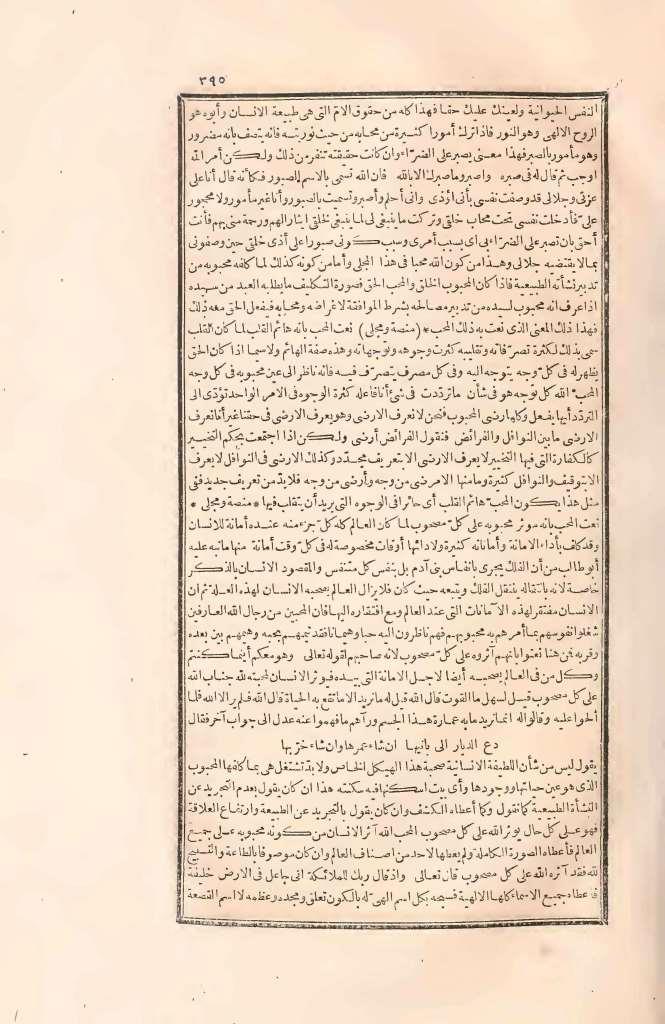 ٣٩٥
النفس الحيوانية ولعينك عليك حقا فهذا كله من حقوق الام التى هى طبيعة الانسان وأبوه هو
الروح الالهى وهو النور فاذا ترك أمورا كثيرة من محابه من حيث نوريته فانه يتصف بانه مضرور
وهو مأمور بالصبر فهذا معنى يصبر على الضراء وان كانت حقيقته تنفر من ذلك ولكن أمر الله
أوجب ثم قال له فى صبره واصبر وما صبرك الا بالله فان الله تسمى بالاسم الصبور فكأنه قال أنا على
عزتى وجلالى قد وصفت نفسى بأنى أوذى وانى أحلم وأصبر وتسميت بالصبور وأنا غير مأمور ولا محجور
علىّ فأدخلت نفسى تحت محاب خلقى وتركت ما ينبغى لى لما ينبغى لخلقى ايثارا لهم ورحمة منى بهم فأنت
أحق بان تصبر على الضراء بى أى بسبب أمرى وبسبب كونى صبورا على أذى خلقى حين وصفونى
بما لا يقتضيه جلالى وهذا من كون الله محبا فى هذا المجلى وأما من كونه كذلك لما كلفه محبوبه من
تدبير نشأته الطبيعية فاذا كان المحبوب الخلق والمحب الحق فصورة التكليف ما يطلبه العبد من سيده
اذا عرف انه محبوب لسيده من تدبير مصالحه بشرط الموافقة لاغراضه ومحابه فيفعل الحق معه ذلك
فهذا ذلك المعنى الذى نعت به ذلك المحب * (منصة ومجلى) نعت المحب بانه هائم القلب لما كان القلب
سمى بذلك لكثرة تصرفاته وتقاليبه كثرت وجوهه وتوجهاته وهذه صفة الهائم ولا سيما اذا كان الحق
يظهر له فى كل وجه يتوجه اليه وفى كل مصرف يتصرف فيه فانه ناظر الى عين محبوبه فى كل وجه
المحب الله كل توجه هو فى شأن ما ترددت فى شئ أنا فاعله كثرة الوجوه فى الامر الواحد تؤدى الى
التردد أيها يفعل وكلها رضى المحبوب فنحن لا نعرف الارضى وهو يعرف الارضى فى حقنا غير أنا نعرف
الارضى ما بين النوافل والفرائض فنقول الفرائض أرضى ولكن اذا اجتمعت بحكم التخيير
كالكفارة التى فيها التخيير لا يعرف الارضى الا بتعريف مجدد وكذلك الارضى فى النوافل لا يعرف
الا بتوقيف والنوافل كثيرة وما منها الا مرضى من وجه وأرضى من وجه فلا بد من تعريف جديد ففى
مثل هذا يكون المحب هائم القلب أى حائر فى الوجوه التى يريد أن يتقلب فيها * منصة ومجلى *
نعت المحب بانه مؤثر محبوبه على كل مصحوب لما كان العالم كله كل جزء منه عنده أمانة للانسان
وقد كلف بأداء الامانة وأماناته كثيرة ولادائها أوقات مخصوصة له فى كل وقت أمانة منها ما نبه عليه
أبو طالب من أن الفلك يجرى بانفاس بنى آدم بل بنفس كل متنفس والمقصود الانسان بالذكر
خاصة لانه بانتقاله ينتقل الفلك ويتبعه حيث كان فلا يزال العالم يصحبه الانسان لهذه العلة ثم ان
الانسان مفتقر لهذه الامانات التى عند العالم ومع افتقاره اليها فان المحبين من رجال الله العارفين
شغلوا نفوسهم بما أمرهم به محبوبهم فهم ناظرون اليه حبا وهيمانا قد تيمهم بحبه وهيمهم بين بعده
وقربه فمن هنا نعتوا بانهم آثروه على كل مصحوب لانه صاحبهم لقوله تعالى وهو معكم أينما كنتم
وكل من فى العالم يصحبه أيضا لاجل الامانة التى بيده فيؤثر الانسان لمحبته لله جناب الله
على كل مصحوب قيل لسهل ما القوت قال الله قيل له ما نريد الا ما تقع به الحياة قال الله فلم ير الا الله فلما
ألحوا عليه وقالوا له انما نريد ما به عمارة هذا الجسم ورآهم ما فهموا عنه عدل الى جواب آخر فقال
دع الديار الى بانيها ان شاء عمرها وان شاء خربها
يقول ليس من شأن اللطيفة الانسانية صحبة هذا الهيكل الخاص ولا بد تشتغل هى بما كلفها المحبوب
الذى هو عين حياتها ووجودها وأى بيت أسكنها فيه سكنته هذا ان كان يقول بعدم التجريد عن
النشأة الطبيعية كما نقول وكما أعطاه الكشف وان كان يقول بالتجريد عن الطبيعة وارتفاع العلاقة
فهو على كل حال يؤثر الله على كل مصحوب المحب الله آثر الانسان من كونه محبوبه على جميع
العالم فأعطاه الصورة الكاملة ولم يعطها لاحد من أصناف العالم وان كان موصوفا بالطاعة والتسبيح
لله فقد آثره الله على كل مصحوب قال تعالى واذ قال ربك للملائكة انى جاعل فى الارض خليفة
فأعطاه جميع الاسماء كلها الالهية فسبحه بكل اسم الهى له بالكون تعلق ومجده وعظمه لا اسم القصعة